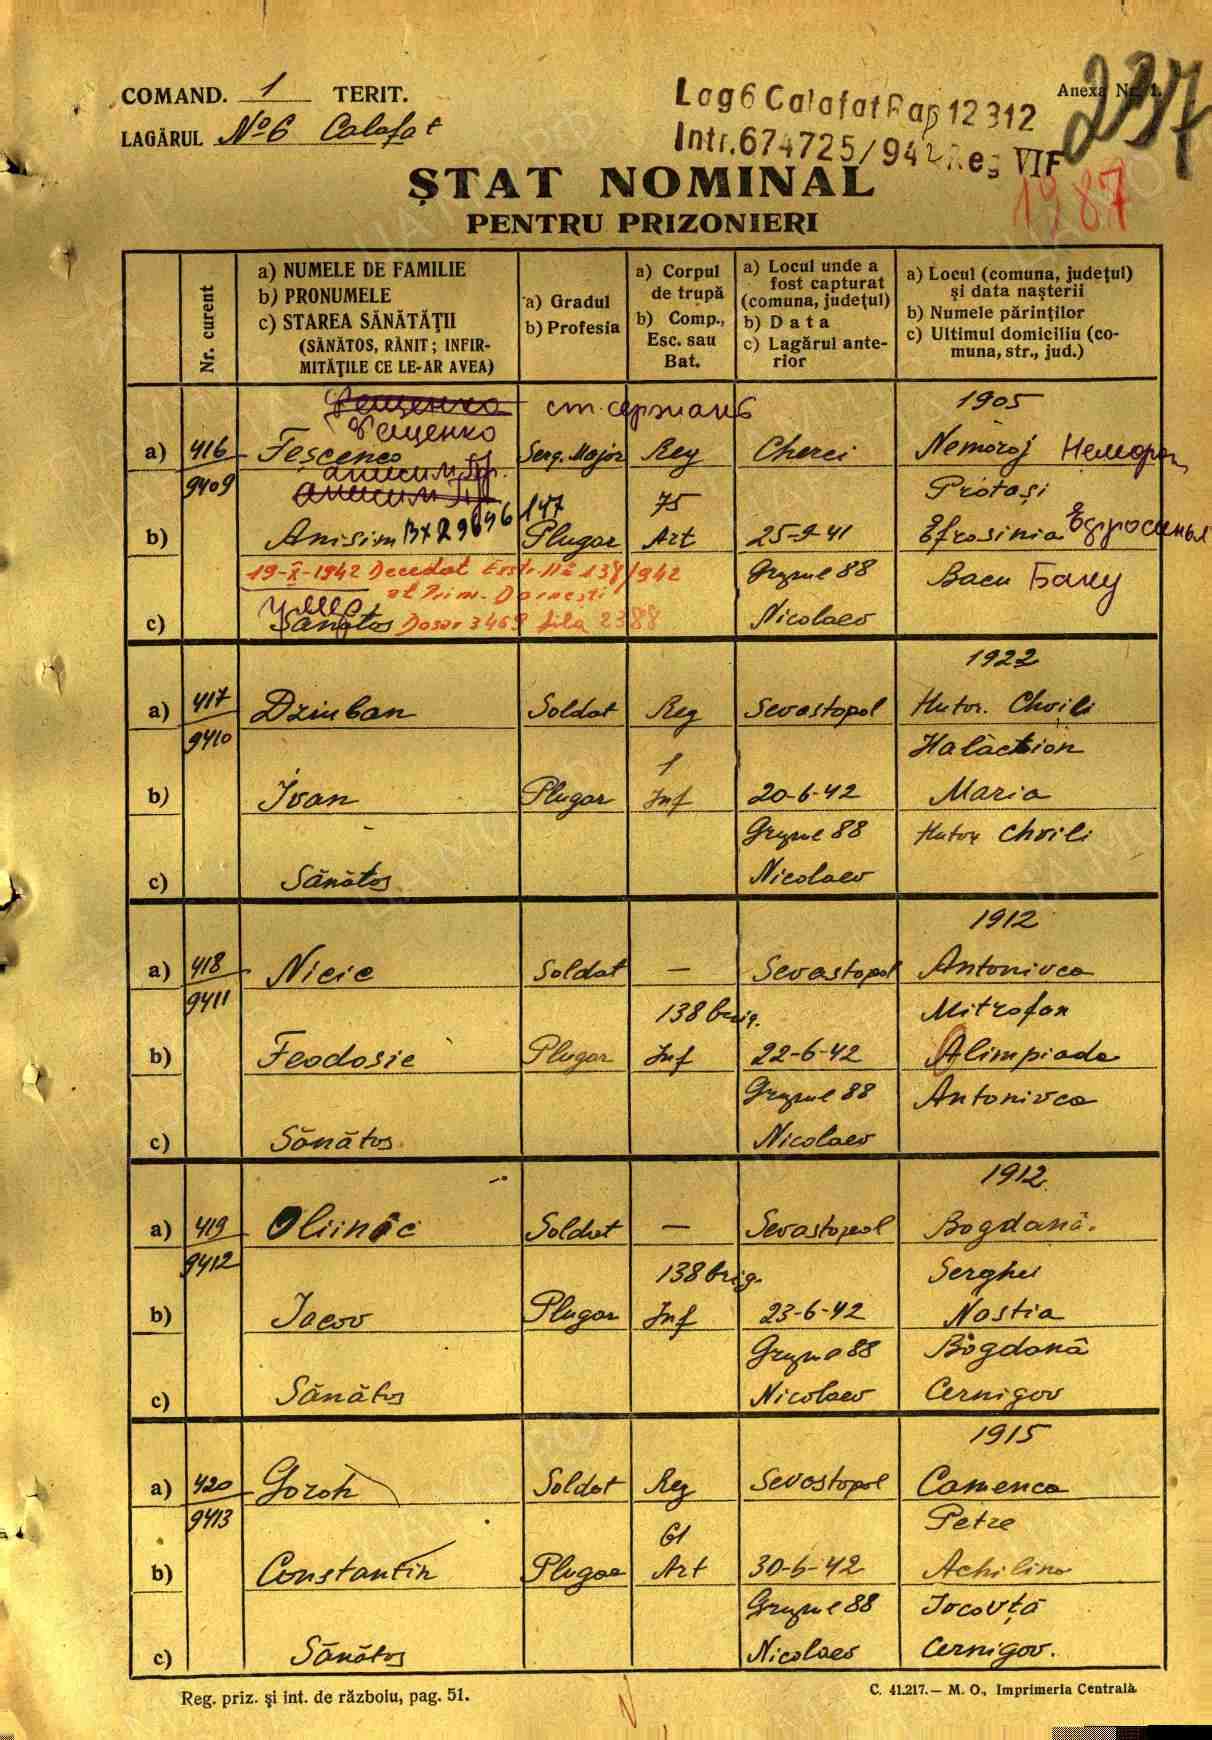 COMAND. 1 TERIT.
LAGĂRUL No 6 Calafat
Lag 6 Calafat Rap 12312
Intr. 674725/942 Reg VII F
Anexa Nr. 1.
237
1987
ȘTAT NOMINAL
PENTRU PRIZONIERI
Nr. curent
a) NUMELE DE FAMILIE
b) PRONUMELE
c) STAREA SĂNĂTĂŢII
(SĂNĂTOS, RĂNIT; INFIR-
MITĂŢILE CE LE-AR AVEA)
a) Gradul
b) Profesia
a) Corpul
de trupă
b) Comp.,
Esc. sau
Bat.
a) Locul unde a
fost capturat
(comuna, judeţul)
b) Data
c) Lagărul ante-
rior
a) Locul (comuna, judeţul)
şi data naşterii
b) Numele părinţilor
c) Ultimul domiciliu (co-
muna, str., jud.)
Фещенко ст. сержант 1905
Фещенко
a) 416 Feșcenco Serg. Major Reg Cherci Nemoroj Неморож
Анисим Пр.
9409 Анисим 147 75 Protași
b) Anisim Вх 29646 Plugar Art 25-9-41 Efrosinia Ефросинья
19-X-1942 Decedat 138/942 Grupul 88 Bacu Баку
at Prim. Dornești
умер
c) Sănătos Dosar 3469 fila 2388 Nicolaev
1922
a) 417 Dziuban Soldat Reg Sevastopol Hutor. Chvili
9410 1 Halaction
b) Ivan Plugar Inf 20-6-42 Maria
Grupul 88 Hutor Chvili
c) Sănătos Nicolaev
1912
a) 418 Nicic Soldat — Sevastopol Antonivca
9411 138 brig. Mitrofan
b) Feodosie Plugar Inf 22-6-42 Alimpiada
Grupul 88 Antonivca
c) Sănătos Nicolaev
1912
a) 419 Oliinic Soldat — Sevastopol Bogdană.
9412 138 brig. Serghei
b) Iacov Plugar Inf 23-6-42 Nastia
Grupul 88 Bogdană
c) Sănătos Nicolaev Cernigov
1915
a) 420 Goroh Soldat Reg Sevastopol Camenca
9413 61 Petre
b) Constantin Plugar Art 30-6-42 Achilina
Grupul 88 Iacovță
c) Sănătos Nicolaev Cernigov.
Reg. priz. şi int. de războiu, pag. 51.
C. 41.217.— M. O., Imprimeria Centrală